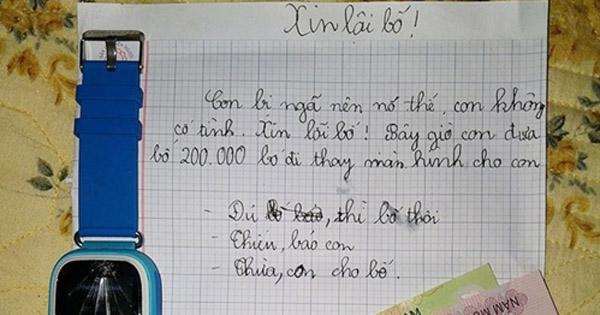 Xin lỗi bố!
Con bi ngã nên nó thế, con không
cố tình. Xin lỗi bố! Bây giờ con đưa
bố 200.000 bố đi thay màn hình cho con
- Đủ, thì bố thôi
- Thiếu, bảo con
- Thừa, con cho bố.
NĂM